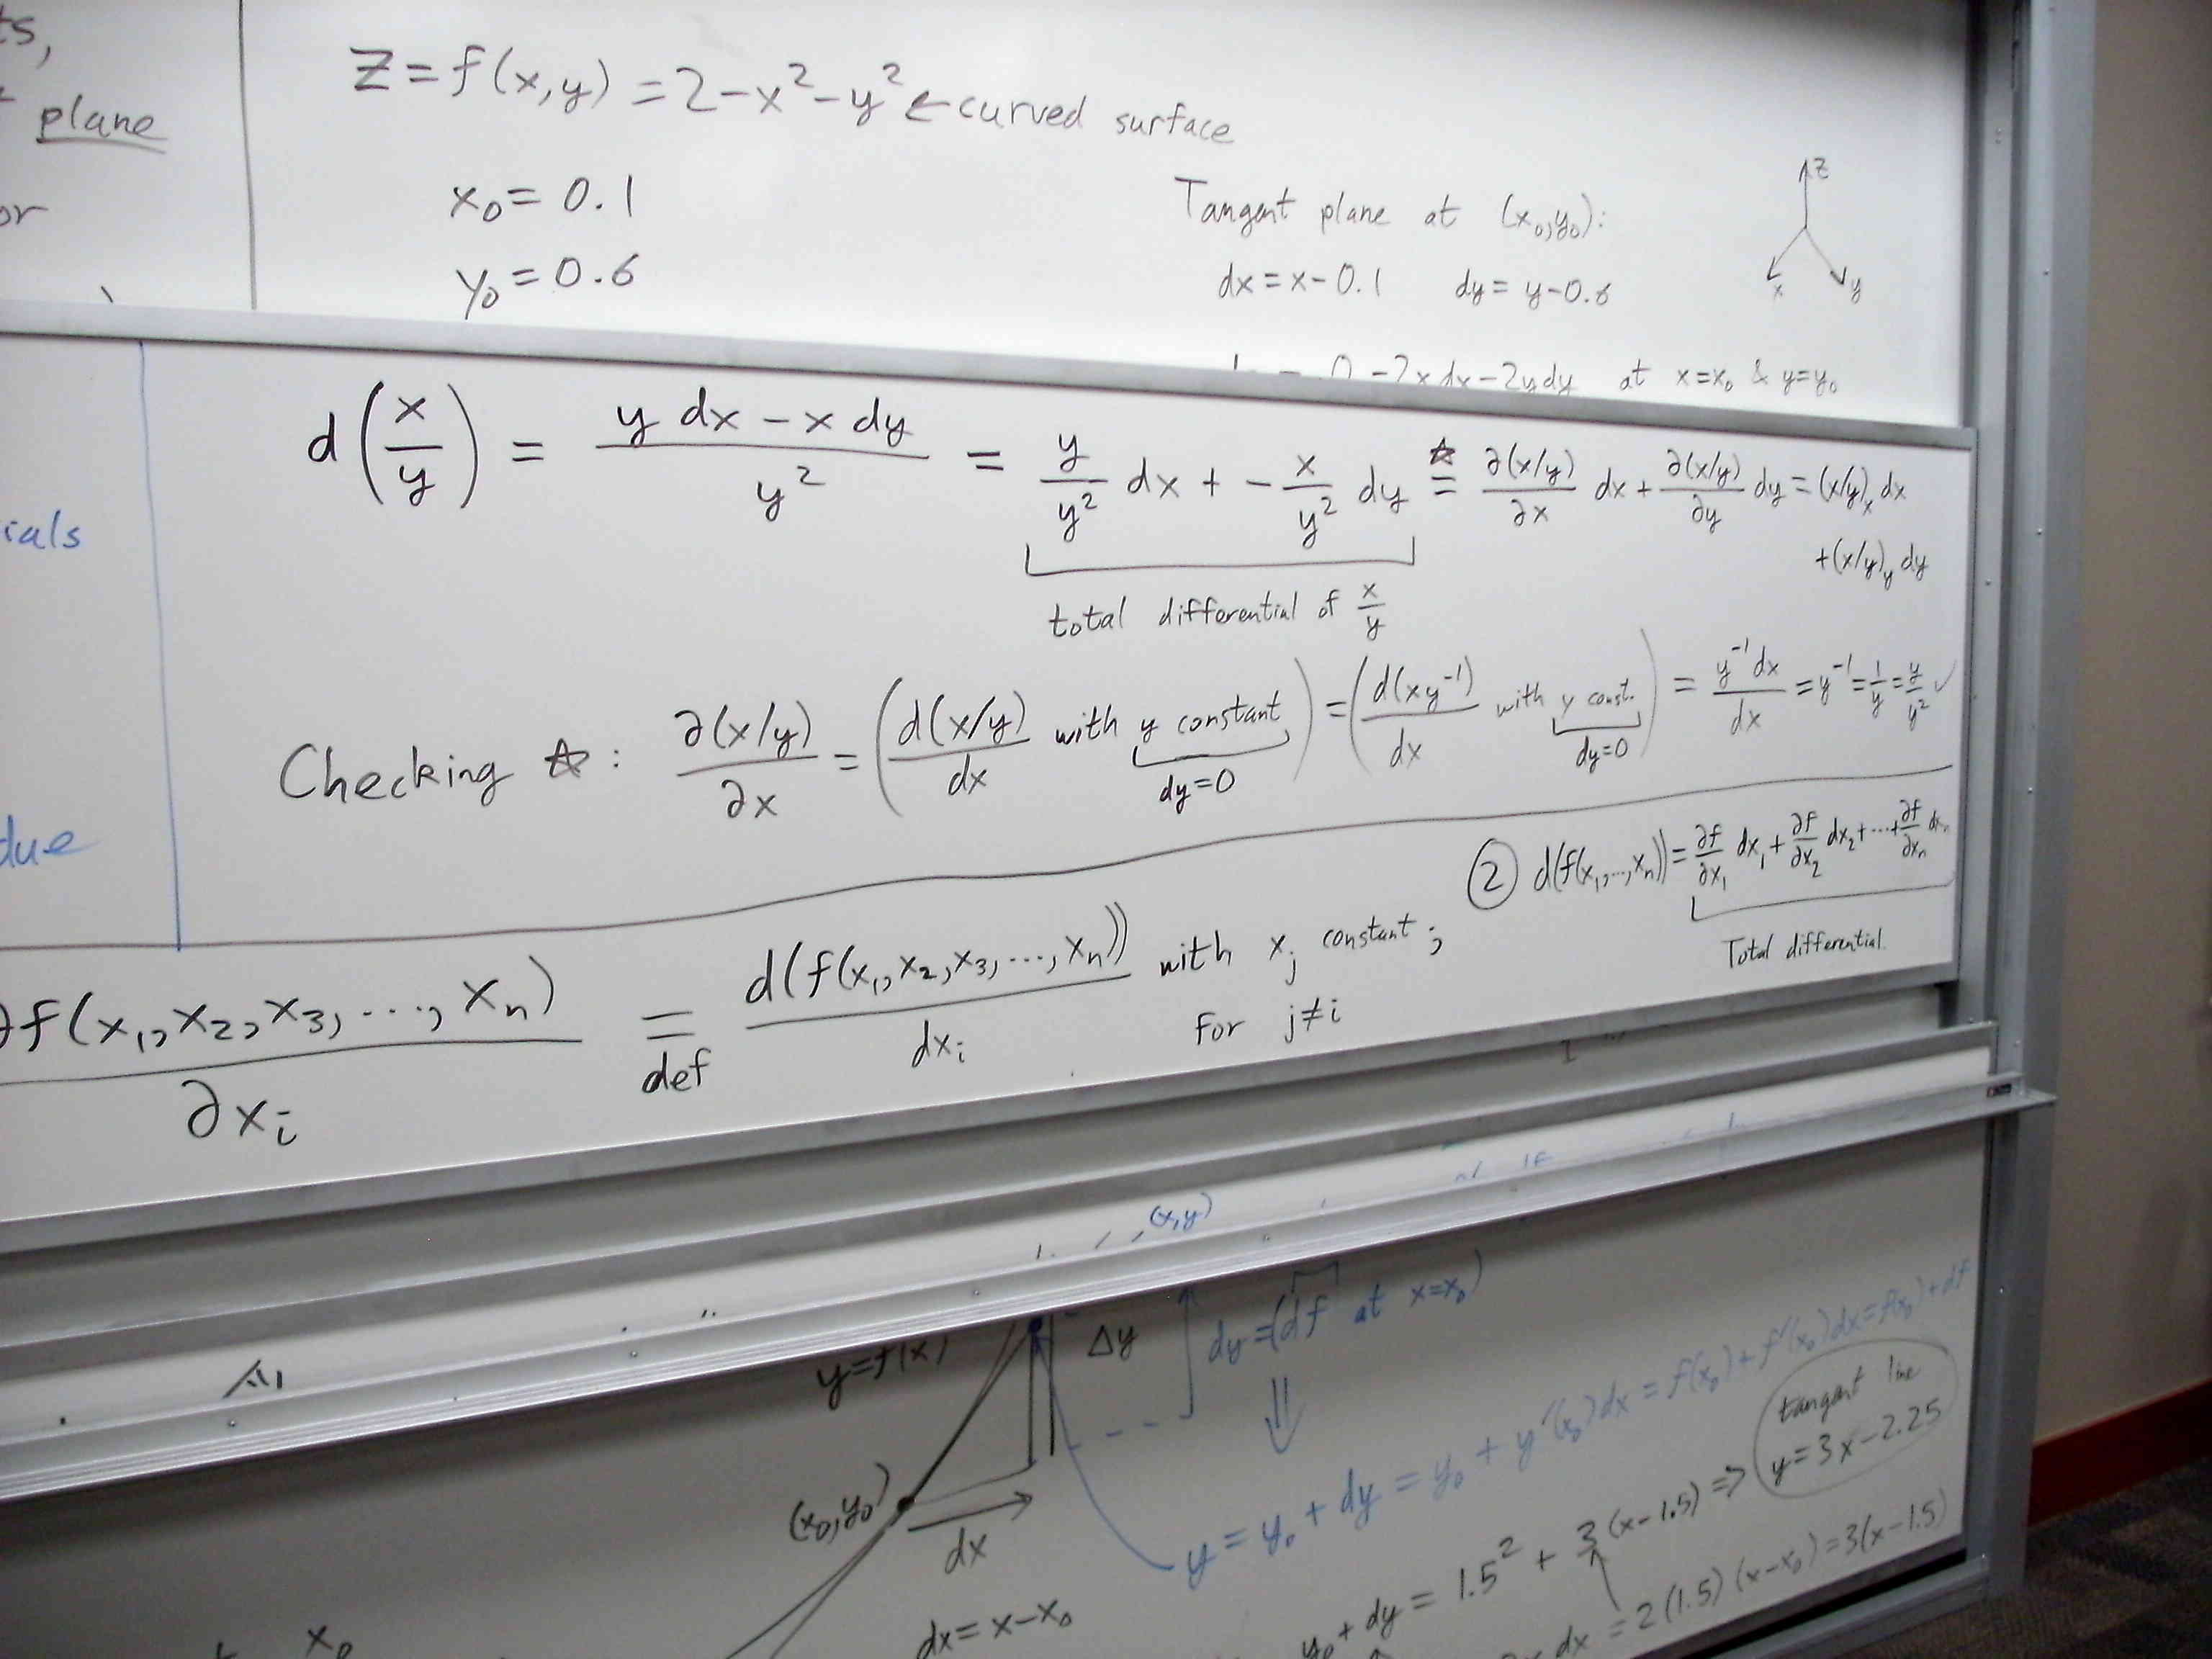 plane
or
z = f(x,y) = 2-x²-y² ← curved surface
x₀ = 0.1
y₀ = 0.6
Tangent plane at (x₀,y₀):
dx = x-0.1 dy = y-0.6
z
x y
0 -2x dx - 2y dy at x=x₀ & y=y₀
ials
due
d(x/y) = (y dx - x dy)/y² = y/y² dx + - x/y² dy ☆= ∂(x/y)/∂x dx + ∂(x/y)/∂y dy = (x/y)ₓ dx
+(x/y)_y dy
total differential of x/y
Checking ☆: ∂(x/y)/∂x = (d(x/y)/dx with y constant) = (d(xy⁻¹)/dx with y const.) = y⁻¹dx/dx = y⁻¹ = 1/y = y/y² ✓
dy=0 dy=0
② d(f(x₁,...,xₙ)) = ∂f/∂x₁ dx₁ + ∂f/∂x₂ dx₂ + ... + ∂f/∂xₙ dxₙ
Total differential.
∂f(x₁,x₂,x₃,...,xₙ)/∂xᵢ =def d(f(x₁,x₂,x₃,...,xₙ))/dxᵢ with xⱼ constant;
for j≠i
(x,y)
y=f(x) Δy dy = (df at x=x₀)
⇓
(x₀,y₀)
dx
y = y₀ + dy = y₀ + y'(x₀)dx = f(x₀) + f'(x₀)dx = f(x₀) + df
tangent line
y = 3x-2.25
y₀ + dy = 1.5² + 3(x-1.5) ⇒
dx = x-x₀
dx = 2(1.5)(x-x₀) = 3(x-1.5)
x₀